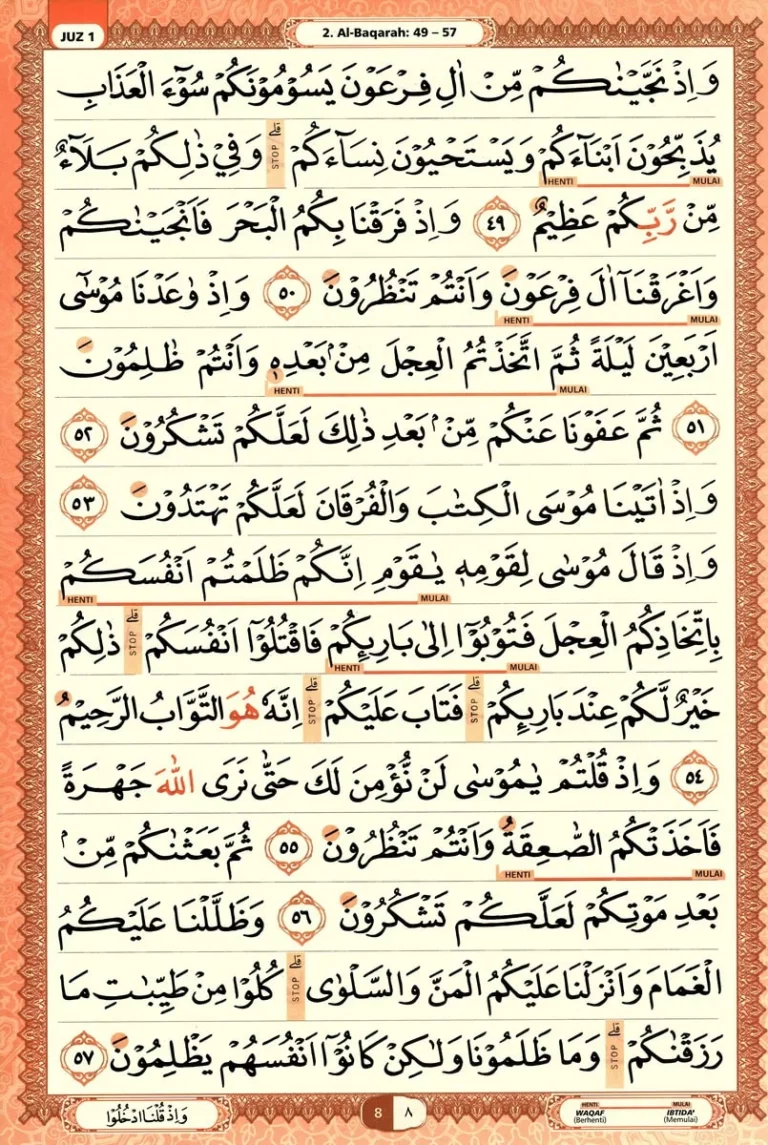 JUZ 1
2. Al-Baqarah: 49 – 57
وَاِذْ نَجَّيْنٰكُمْ مِّنْ اٰلِ فِرْعَوْنَ يَسُوْمُوْنَكُمْ سُوْۤءَ الْعَذَابِ
يُذَبِّحُوْنَ اَبْنَاۤءَكُمْ وَيَسْتَحْيُوْنَ نِسَاۤءَكُمْ ۗ STOP وَفِيْ ذٰلِكُمْ بَلَاۤءٌ
HENTI MULAI
مِّنْ رَّبِّكُمْ عَظِيْمٌ ٤٩ وَاِذْ فَرَقْنَا بِكُمُ الْبَحْرَ فَاَنْجَيْنٰكُمْ
وَاَغْرَقْنَآ اٰلَ فِرْعَوْنَ وَاَنْتُمْ تَنْظُرُوْنَ ٥٠ وَاِذْ وٰعَدْنَا مُوْسٰٓى
HENTI MULAI
اَرْبَعِيْنَ لَيْلَةً ثُمَّ اتَّخَذْتُمُ الْعِجْلَ مِنْۢ بَعْدِهٖ وَاَنْتُمْ ظٰلِمُوْنَ
١ HENTI MULAI
٥١ ثُمَّ عَفَوْنَا عَنْكُمْ مِّنْۢ بَعْدِ ذٰلِكَ لَعَلَّكُمْ تَشْكُرُوْنَ ٥٢
وَاِذْ اٰتَيْنَا مُوْسَى الْكِتٰبَ وَالْفُرْقَانَ لَعَلَّكُمْ تَهْتَدُوْنَ ٥٣
وَاِذْ قَالَ مُوْسٰى لِقَوْمِهٖ يٰقَوْمِ اِنَّكُمْ ظَلَمْتُمْ اَنْفُسَكُمْ
HENTI MULAI
بِاتِّخَاذِكُمُ الْعِجْلَ فَتُوْبُوْٓا اِلٰى بَارِىِٕكُمْ فَاقْتُلُوْٓا اَنْفُسَكُمْ ۗ STOP ذٰلِكُمْ
HENTI MULAI
خَيْرٌ لَّكُمْ عِنْدَ بَارِىِٕكُمْ ۗ STOP فَتَابَ عَلَيْكُمْ ۗ STOP اِنَّهٗ هُوَ التَّوَّابُ الرَّحِيْمُ
٥٤ وَاِذْ قُلْتُمْ يٰمُوْسٰى لَنْ نُّؤْمِنَ لَكَ حَتّٰى نَرَى اللّٰهَ جَهْرَةً
فَاَخَذَتْكُمُ الصّٰعِقَةُ وَاَنْتُمْ تَنْظُرُوْنَ ٥٥ ثُمَّ بَعَثْنٰكُمْ مِّنْۢ
HENTI MULAI
بَعْدِ مَوْتِكُمْ لَعَلَّكُمْ تَشْكُرُوْنَ ٥٦ وَظَلَّلْنَا عَلَيْكُمُ
الْغَمَامَ وَاَنْزَلْنَا عَلَيْكُمُ الْمَنَّ وَالسَّلْوٰى ۗ STOP كُلُوْا مِنْ طَيِّبٰتِ مَا
رَزَقْنٰكُمْ ۗ STOP وَمَا ظَلَمُوْنَا وَلٰكِنْ كَانُوْٓا اَنْفُسَهُمْ يَظْلِمُوْنَ ٥٧
وَاِذْ قُلْنَا ادْخُلُوْا
8 ٨
HENTI MULAI
WAQAF IBTIDA'
(Berhenti) (Memulai)